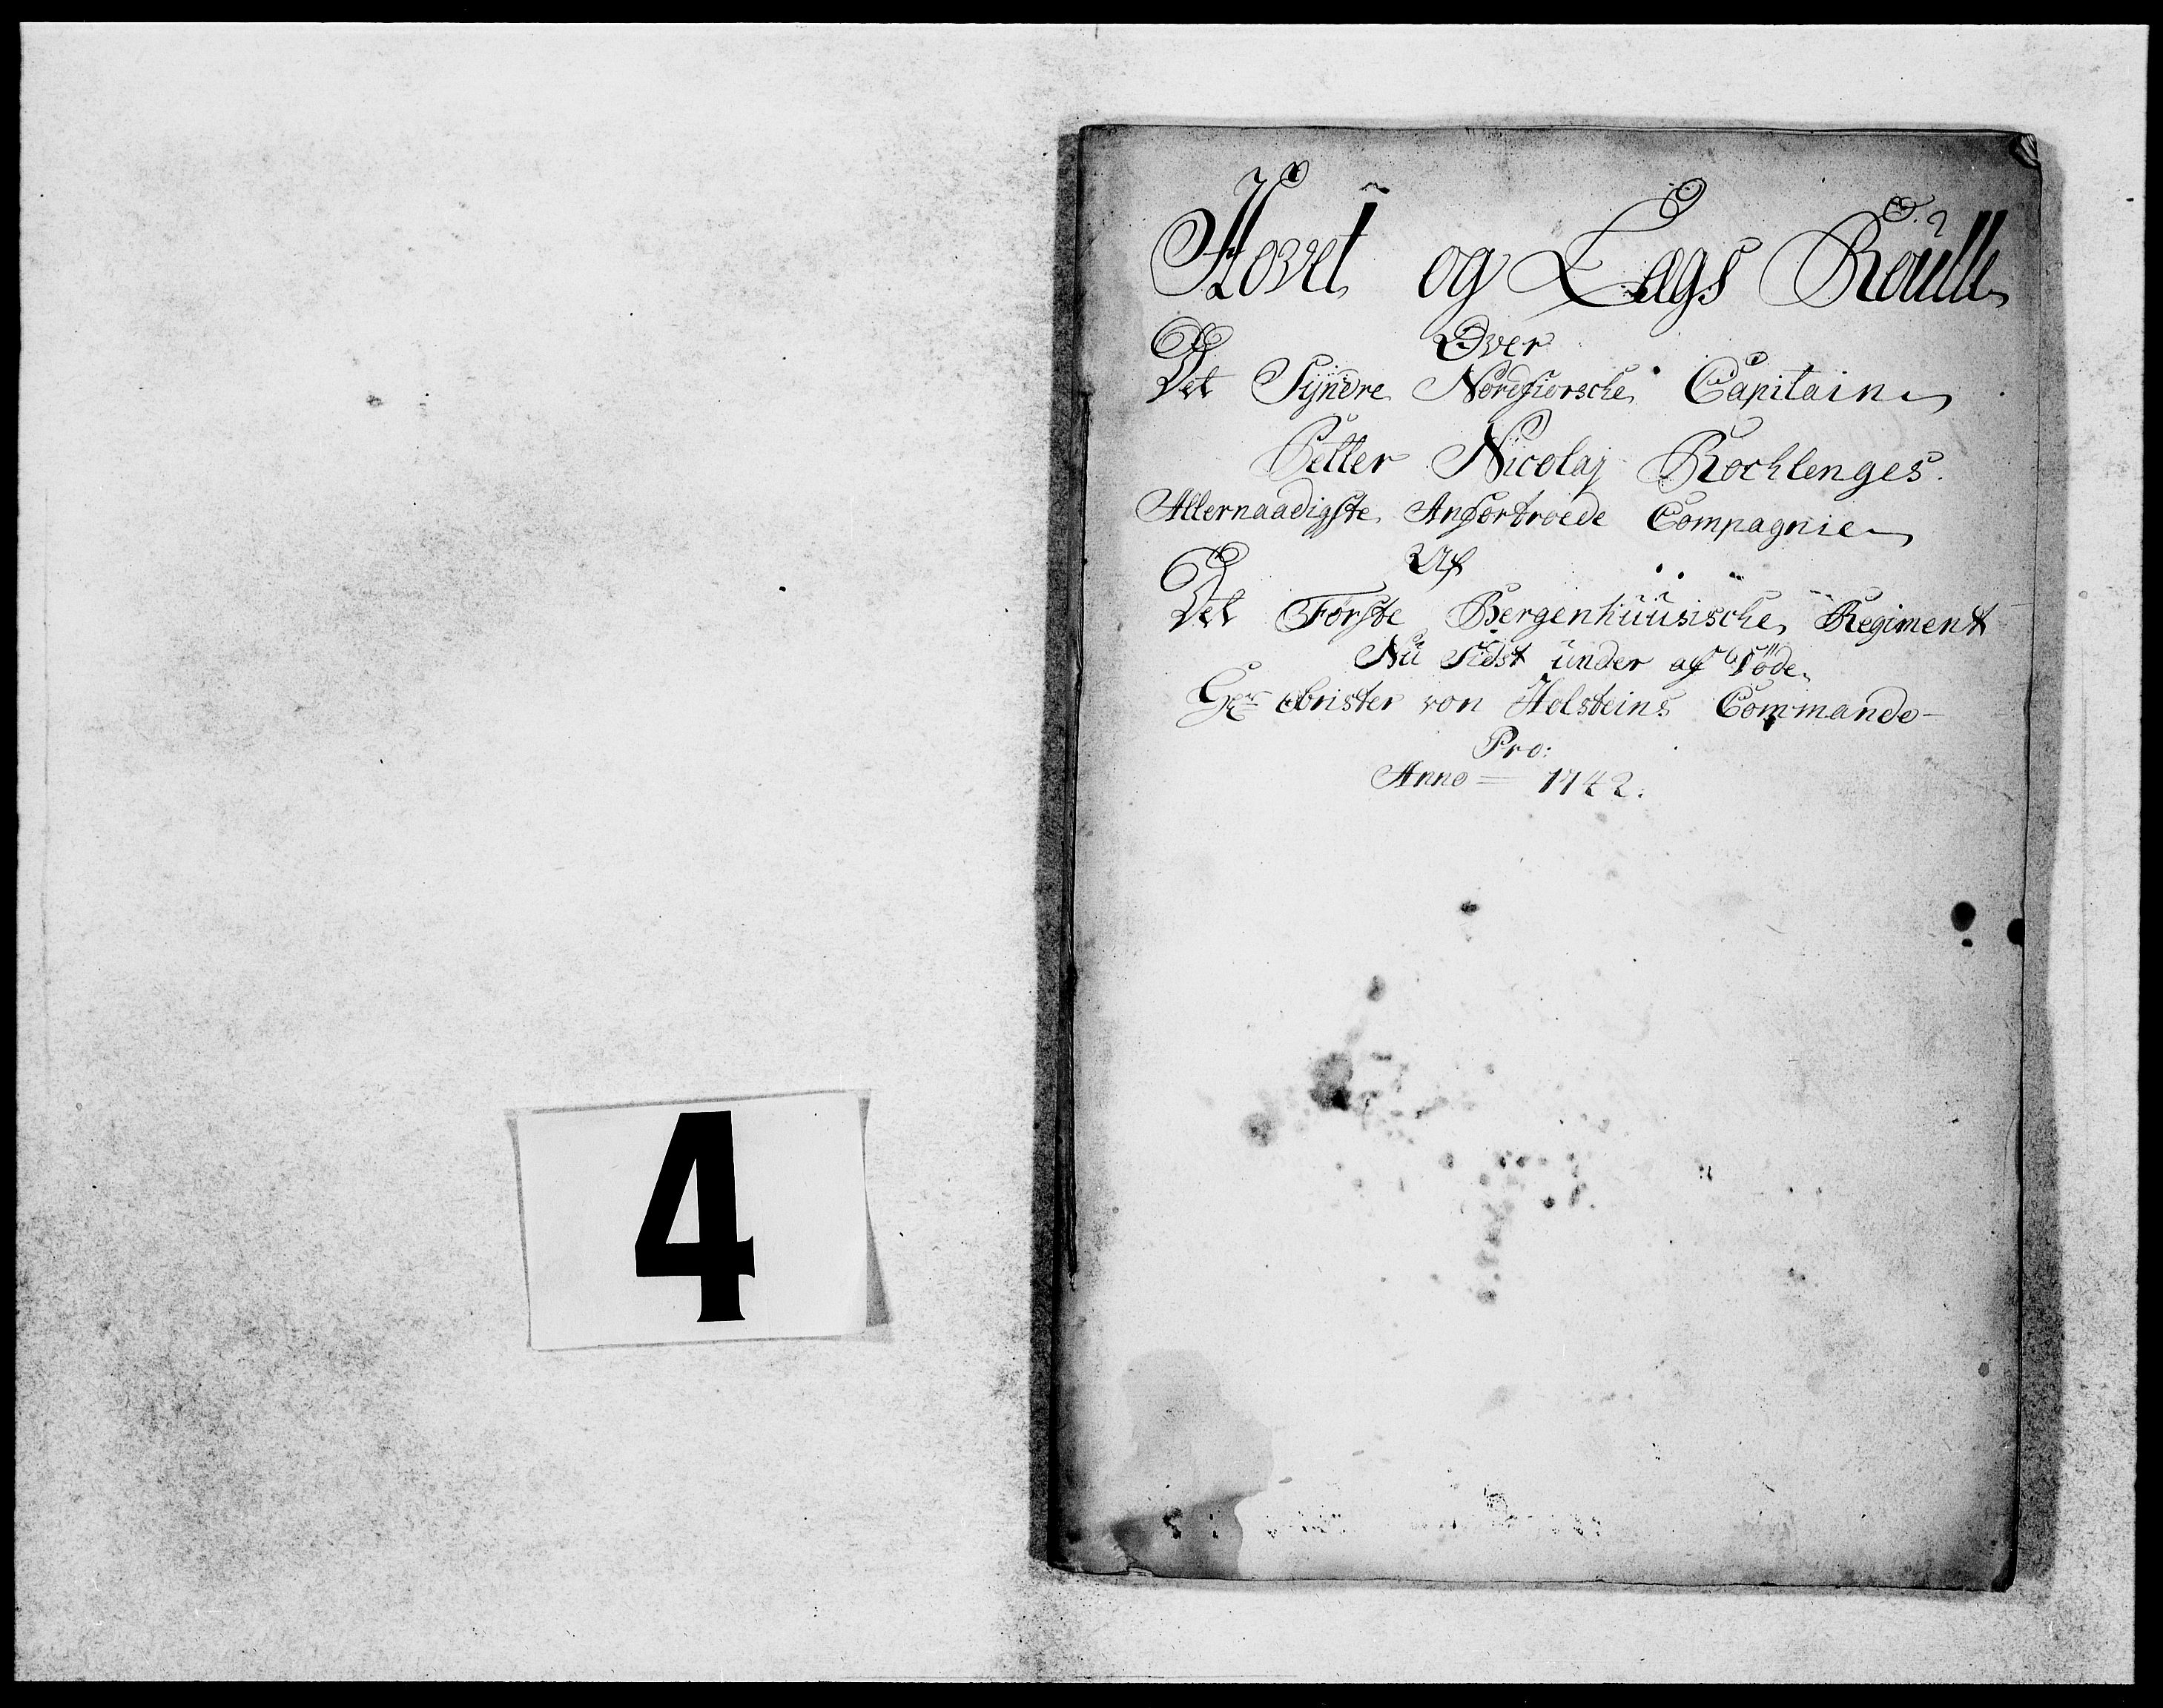 Hovet og Lægs Roulle
Over
Det Syndre Nordfiorsche Capitain
Petter Nicolaj Rochlenges.
Allernaadigste Anfortroede Compagnie
Af
Det Første Bergenhuusische Regiment
Nu Sidst under af Døde
Hr Obrister von Holsteins Commando
Pro:
Anno = 1742.
4